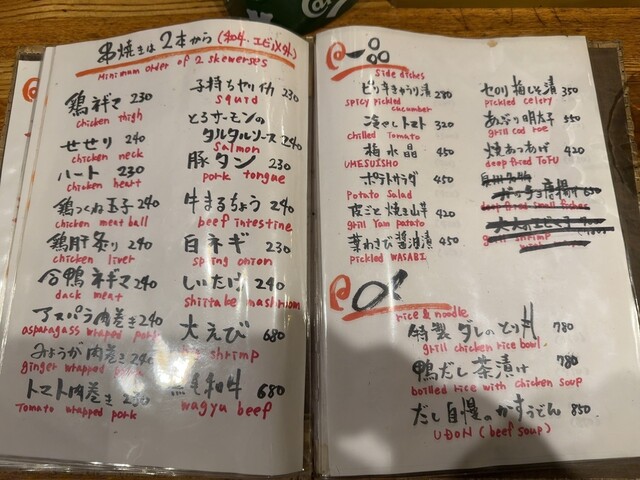 串焼きは2本から(和牛、エビ以外)
Minimum order of 2 skewerses
鶏ネギマ 230
chicken thigh
せせり 240
chicken neck
ハート 230
chicken heart
鶏つくね玉子 240
chicken meat ball
鶏肝炙り 240
chicken liver
合鴨ネギマ 240
dack meat
アスパラ肉巻き 240
asparagass wrapped pork
みょうが肉巻き 240
ginger wrapped
トマト肉巻き 230
Tomato wrapped pork
子持ちヤリイカ 230
squid
とろサーモンの
タルタルソース 240
salmon
豚タン 230
pork tongue
牛まるちょう 240
beef intestine
白ネギ 230
spring onion
しいたけ 240
shiitake mashroom
大えび 680
shrimp
和牛 680
wagyu beef
一品
side dishes
ピリ辛きゅうり漬 280
spicy pickled
cucumber
冷やしトマト 320
chilled Tomato
梅水晶 450
UMESUISHO
ポテトサラダ 450
Potato Salad
皮ごと焼き山芋 420
grill Yam patato
葉わさび醤油漬 450
pickled WASABI
セロリ梅しそ漬 350
pickled celery
あぶり明太子 550
grill cod roe
焼あつあげ 420
deep fried TOFU
〆
rice & noodle
特製ダレのとり丼 780
grill chicken rice bowl
鴨だし茶漬け 780
boiled rice with chicken soup
だし自慢のかすうどん 850
UDON (beef soup)